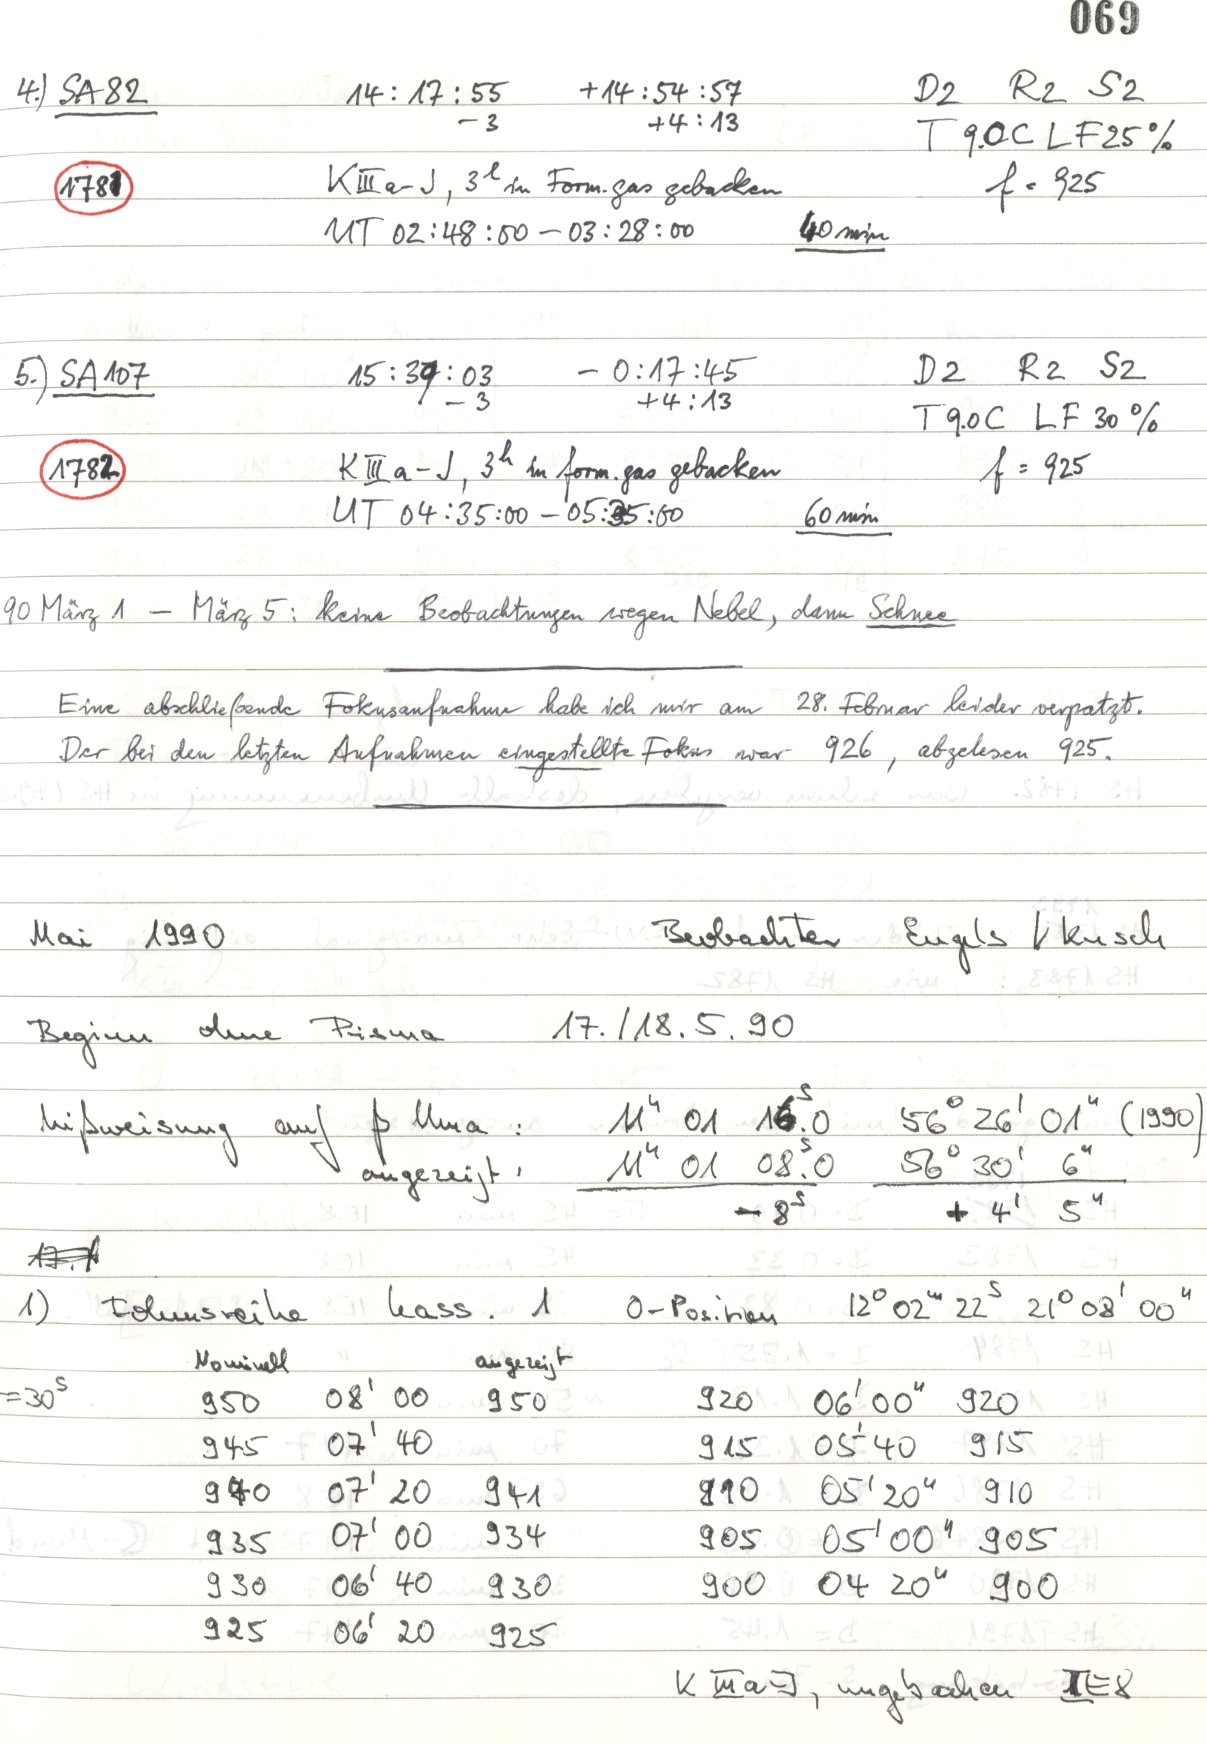 069
4.) SA82 14:17:55 +14:54:57 D2 R2 S2
-3 +4:13 T 9.0C LF 25%
1781 KIIIa-J, 3h in Form.gas gebacken f = 925
UT 02:48:00 - 03:28:00 40 min
5.) SA107 15:39:03 - 0:17:45 D2 R2 S2
-3 +4:13 T 9.0C LF 30%
1782 KIIIa-J, 3h in form.gas gebacken f = 925
UT 04:35:00 - 05:35:00 60 min
90 März 1 - März 5: keine Beobachtungen wegen Nebel, dann Schnee
Eine abschließende Fokusaufnahme habe ich mir am 28. Februar leider verpatzt.
Der bei den letzten Aufnahmen eingestellte Fokus war 926, abgelesen 925.
Mai 1990 Beobachter Engels / Kusch
Beginn ohne Prisma 17./18.5.90
Mißweisung auf β Uma: 11h 01 16s.0 56° 26' 01" (1990)
angezeigt: 11h 01 08s.0 56° 30' 6"
- 8s + 4' 5"
1) Fokusreihe Kass. 1 0-Position 12° 02m 22s 21° 08' 00"
Nominell angezeigt
=30s 950 08' 00 950 920 06' 00" 920
945 07' 40 915 05' 40 915
940 07' 20 941 910 05' 20" 910
935 07' 00 934 905 05' 00" 905
930 06' 40 930 900 04 20" 900
925 06' 20 925
K IIIa-J, ungebacken IE8